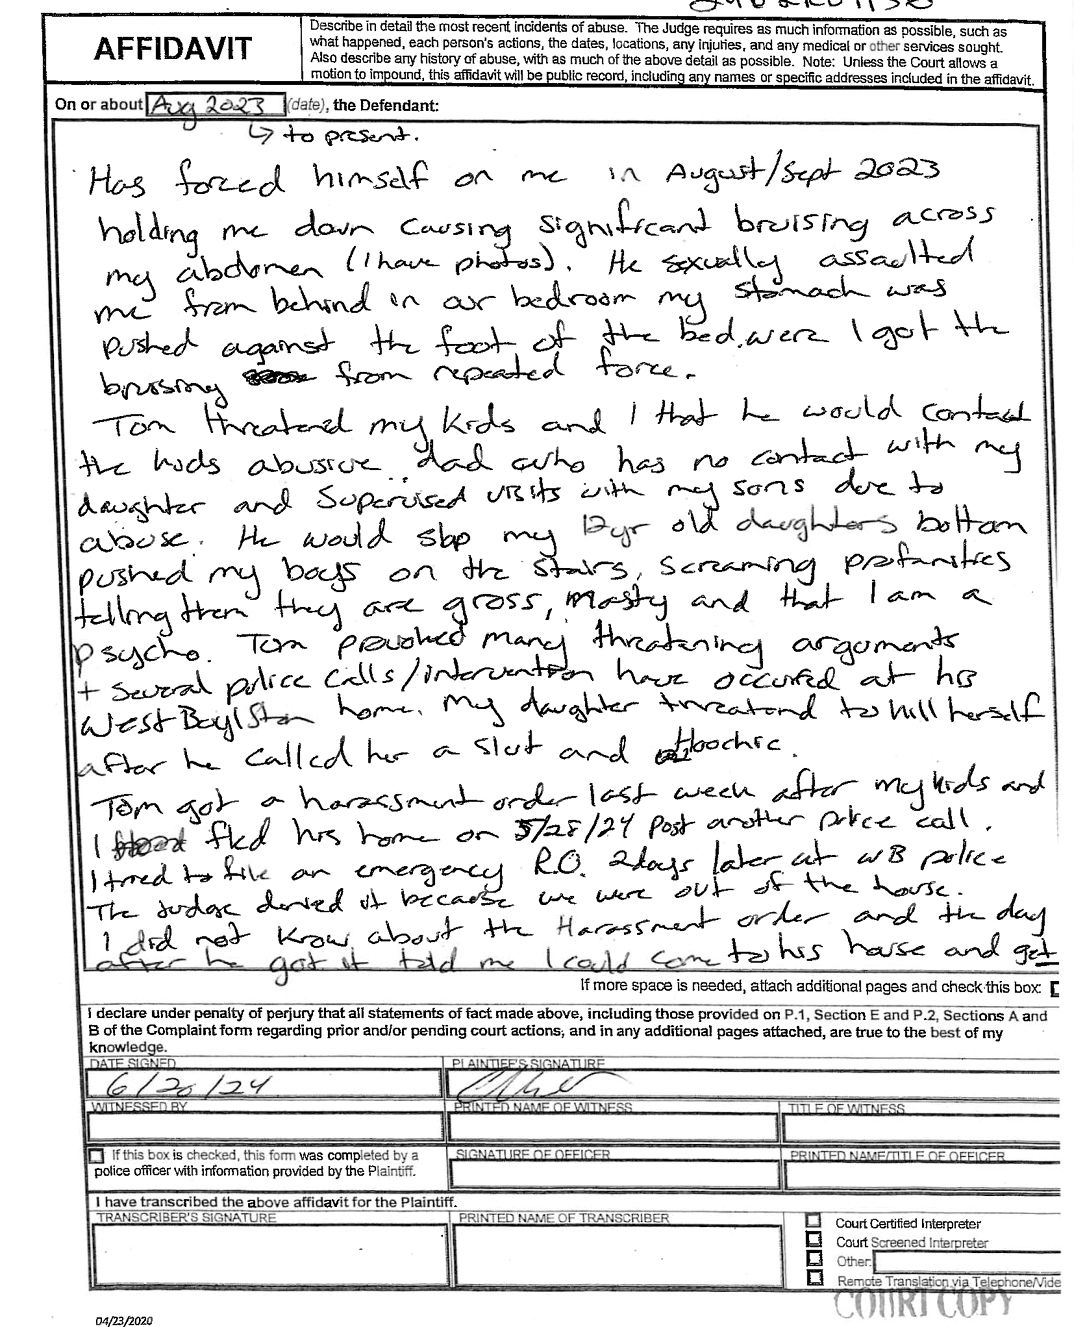 AFFIDAVIT
Describe in detail the most recent incidents of abuse. The Judge requires as much information as possible, such as
what happened, each person's actions, the dates, locations, any injuries, and any medical or other services sought.
Also describe any history of abuse, with as much of the above detail as possible. Note: Unless the Court allows a
motion to impound, this affidavit will be public record, including any names or specific addresses included in the affidavit.
On or about Aug 2023 (date), the Defendant:
↳ to present.
Has forced himself on me in August/Sept 2023
holding me down causing significant bruising across
my abdomen (I have photos). He sexually assaulted
me from behind in our bedroom my stomach was
pushed against the foot of the bed, were I got the
brusing from repeated force.
Tom threatened my kids and I that he would contact
the kids abusive dad who has no contact with my
daughter and supervised visits with my sons due to
abuse. He would slap my 12yr old daughters bottom
pushed my boys on the stairs, screaming profanities
telling them they are gross, nasty and that I am a
psycho. Tom many threatening arguments
+ several police calls/intervention have occured at his
West Boylston home. My daughter threatend to kill herself
after he called her a slut and Hoochie.
Tom got a harassment order last week after my kids and
I fled his home on 5/28/24 post another police call.
I tried to file an emergency R.O. 2days later at WB police
The Judge denied it because we were out of the house.
I did not know about the Harassment order and the day
after he got it told me I could come to his house and get
If more space is needed, attach additional pages and check this box:
I declare under penalty of perjury that all statements of fact made above, including those provided on P.1, Section E and P.2, Sections A and
B of the Complaint form regarding prior and/or pending court actions, and in any additional pages attached, are true to the best of my
knowledge.
DATE SIGNED PLAINTIFF'S SIGNATURE
6/20/24
WITNESSED BY PRINTED NAME OF WITNESS TITLE OF WITNESS
If this box is checked, this form was completed by a
police officer with information provided by the Plaintiff.
SIGNATURE OF OFFICER PRINTED NAME/TITLE OF OFFICER
I have transcribed the above affidavit for the Plaintiff.
TRANSCRIBER'S SIGNATURE PRINTED NAME OF TRANSCRIBER
Court Certified Interpreter
Court Screened Interpreter
Other:
Remote Translation via Telephone/Vide
COURT COPY
04/23/2020